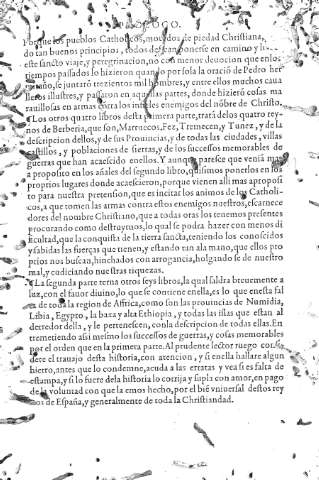 PROLOGO.
Porque los pueblos Catholicos, mouidos de piedad Christiana,
do tan buenos principios, todos dessean ponerse en camino y
este sancto viaje, y peregrinacion, no con menos deuocion que enlos
tiempos passados lo hizieron quando por sola la oració de Pedro her
mitaño, se juntarõ trezientos mil hombres, y entre ellos muchos caua
lleros illustres, y passaron en aquellas partes, donde hizierõ cosas ma
rauillosas en armas contra los infieles enemigos del nõbre de Christo.
¶ Los otros quatro libros desta primera parte, tratã delos quatro rey
nos de Berberia, que son, Marruecos, Fez, Tremecen, y Tunez, y de la
descripcion dellos, y de sus Prouincias, y de todas las ciudades, villas
castillos, y poblaciones de sierras, y de los successos memorables de
guerras que han acaescido enellos. Y aunque paresce que venia mas
a proposito en los añales del segundo libro, quisimos ponerlos en los
proprios lugares donde acaescieron, porque vienen alli mas aproposi
to para nuestra pretension, que es incitar los animos de los Catholi-
cos, a que tomen las armas contra estos enemigos nuestros, escarnece
dores del nombre Christiano, que a todas oras los tenemos presentes
procurando como destruyrnos, lo qual se podra hazer con menos di
ficultad, que la conquista de la tierra sancta, teniendo los conoscidos
y sabidas las fuerças que tienen, y estando tan ala mano, que ellos pro
prios nos buscan, hinchados con arrogancia, holgando se de nuestro
mal, y cudiciando nuestras riquezas.
¶ La segunda parte terna otros seys libros, la qual saldra breuemente a
luz, con el fauor diuino, lo que se contiene enella, es lo que enesta fal
ta de toda la region de Affrica, como son las prouincias de Numidia,
Libia, Egypto, la baxa y alta Ethiopia, y todas las islas que estan al
derredor della, y le pertenescen, conla descripcion de todas ellas. En
tremetiendo assi mesmo los successos de guerras, y cosas memorables
por el orden que en la primera parte. Al prudente lector ruego consi-
dere el trauajo desta historia, con atencion, y si enella hallare algun
hierro, antes que lo condemne, acuda a las erratas y vea si es falta de
estampa, y si lo fuere dela historia lo corrija y supla con amor, en pago
de la voluntad con que la emos hecho, por el biẽ vniuersal destos rey
nos de España, y generalmente de toda la Christiandad.